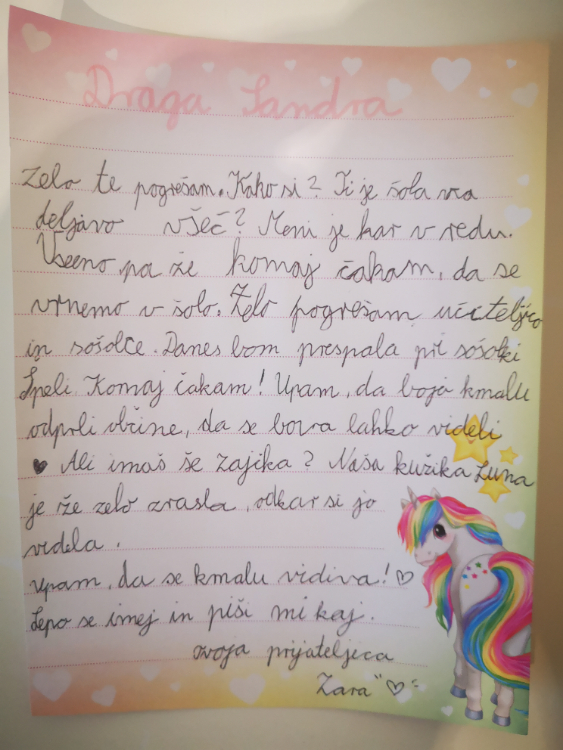 Draga Sandra
Zelo te pogrešam. Kako si? Ti je šola na
deljavo všeč? Meni je kar v redu.
Vseeno pa že komaj čakam, da se
vrnemo v šolo. Zelo pogrešam učiteljico
in sošolce. Danes bom prespala pri sošolki
Špeli Komaj čakam! Upam, da bojo kmalu
odprli občine, da se bova lahko videli
♥ Ali imaš še zajčka? Naša kužika Luna
je že zelo zrasla, odkar si jo
videla.
upam, da se kmalu vidiva! ♡
Lepo se imej in piši mi kaj.
tvoja prijateljica
Zara ♡